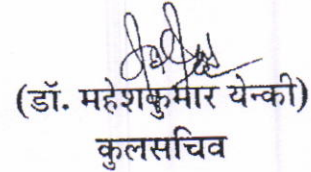 (डॉ. महेशकुमार येन्की)
कुलसचिव